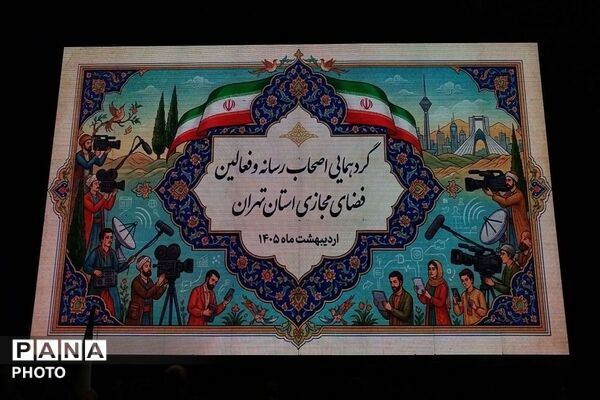 گردهمایی اصحاب رسانه و فعالین
فضای مجازی استان تهران
اردیبهشت ماه ۱۴۰۵
PANA
PHOTO